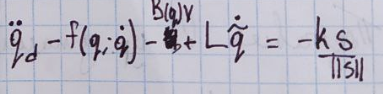 q̈_d - f(q, q̇) - B(q)v + L q̃̇ = -k s/||s||